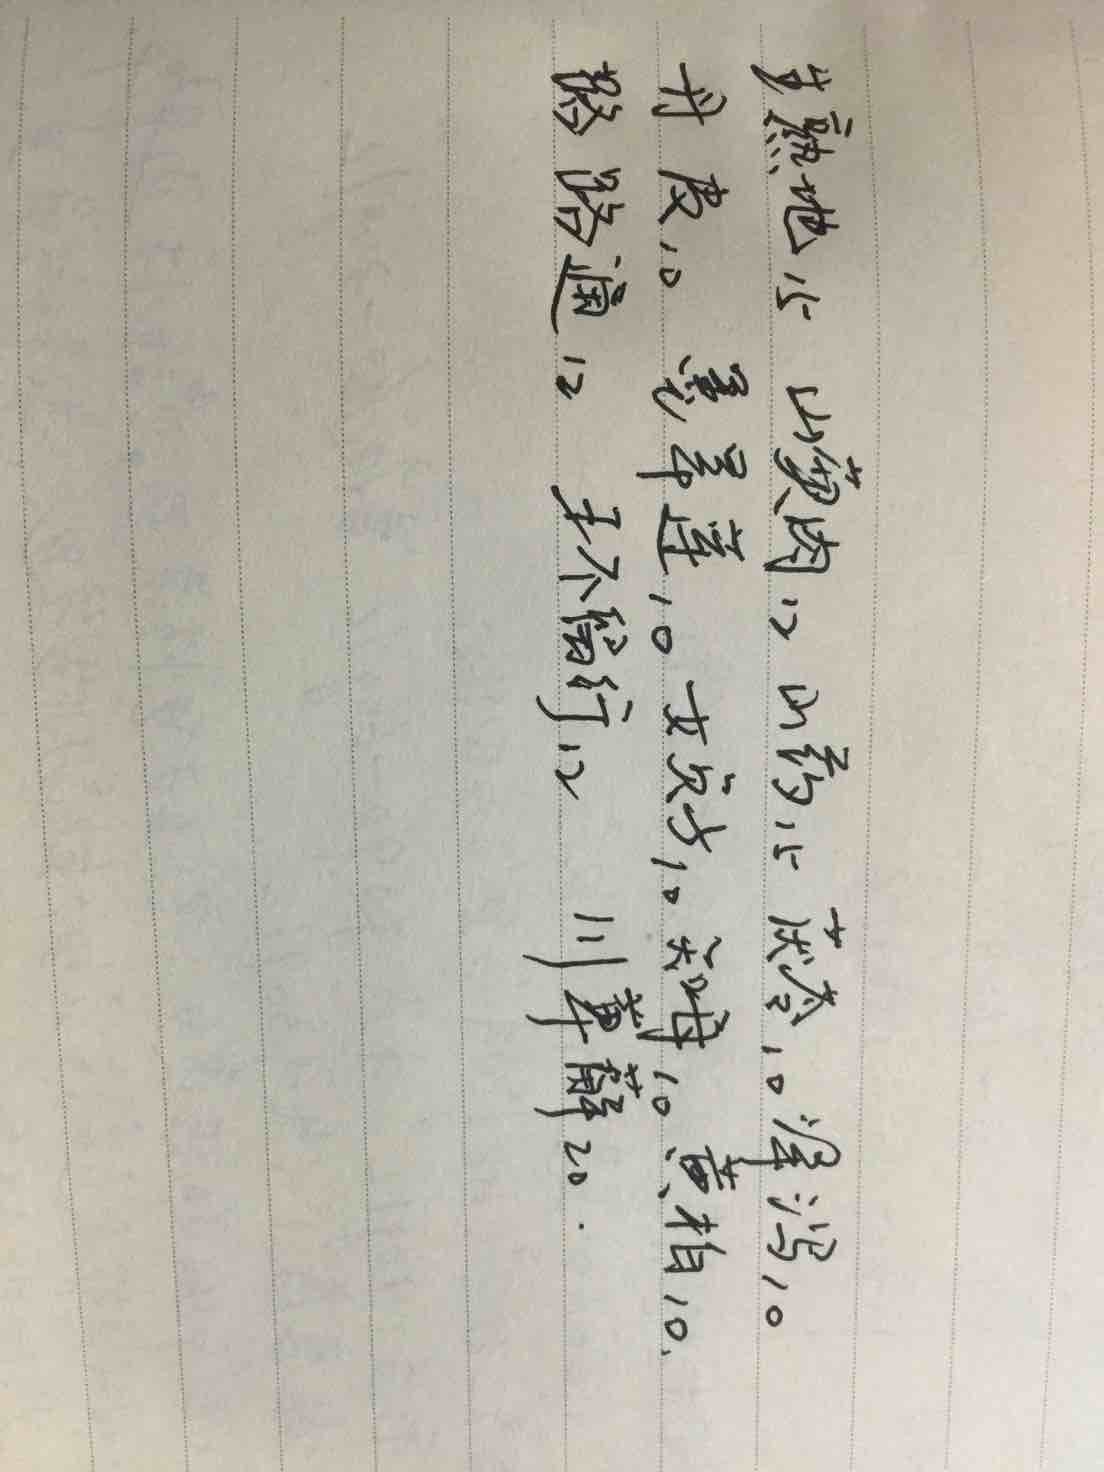 生熟地15 山萸肉12 山药15 茯苓10 泽泻10
丹皮10 墨旱莲10 女贞子10 知母10 黄柏10.
路路通12 王不留行12 川萆薢20.